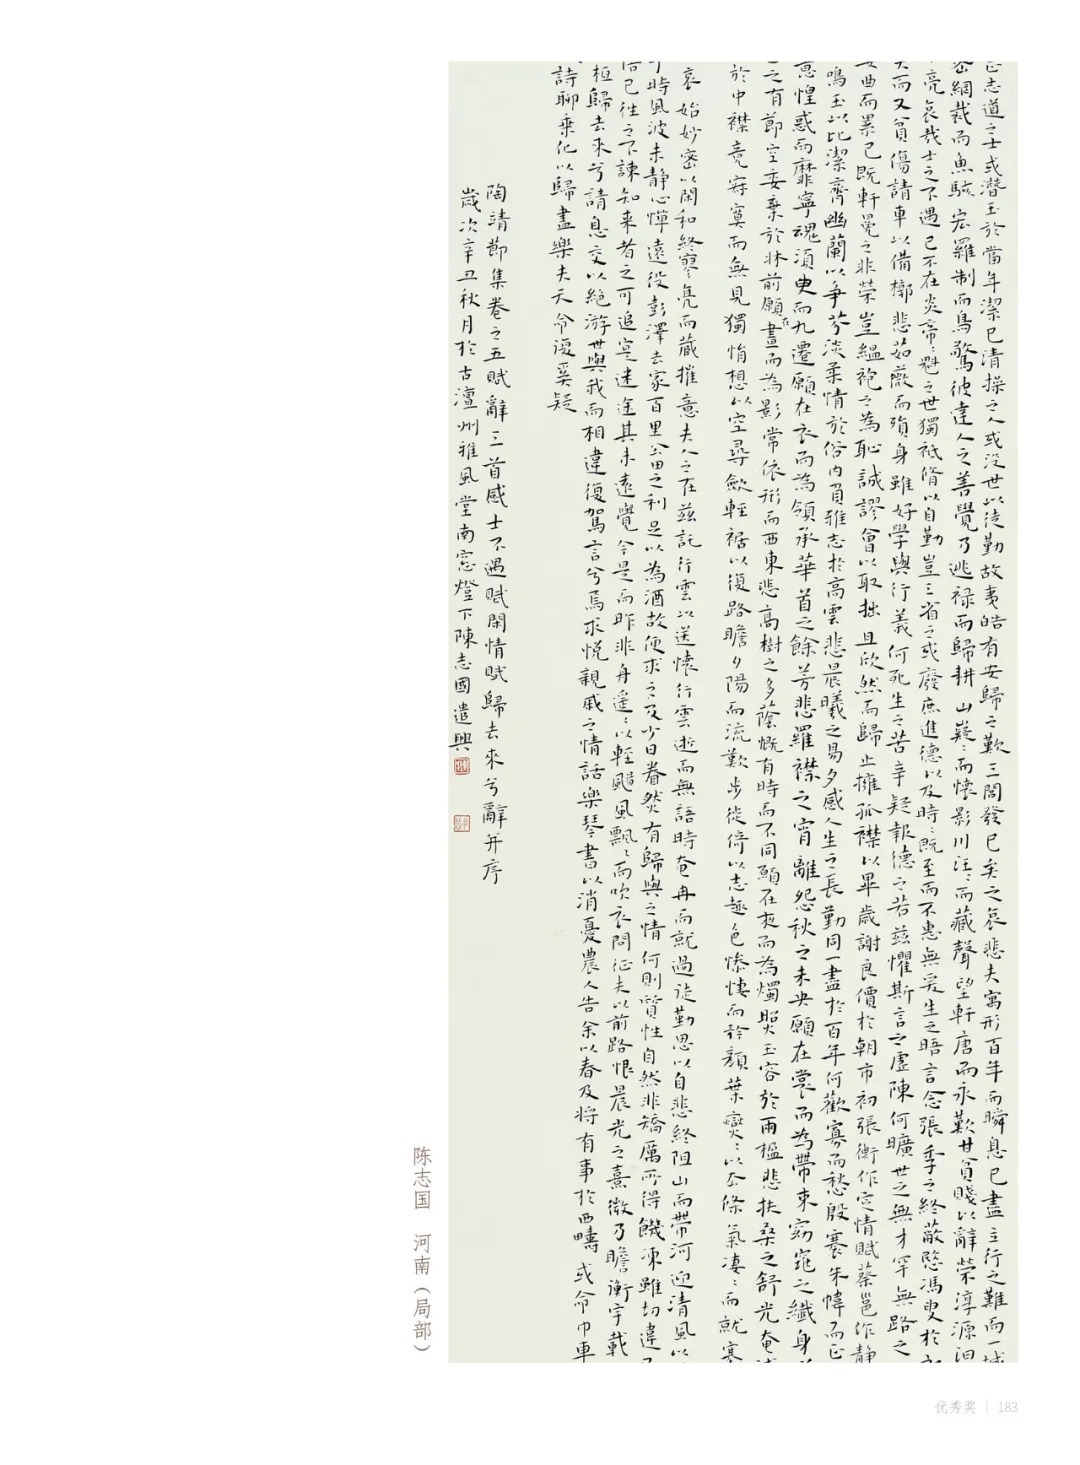 志道之士或潛玉於當年潔己清操之人或沒世以徒勤故夷皓有安歸之歎三閭發已矣之哀悲夫寓形百年而瞬息已盡立行之難而一城
密網裁而魚駭宏羅制而鳥驚彼達人之善覺乃逃祿而歸耕山嶷〻而懷影川汪〻而藏聲望軒唐而永歎甘貧賤以辭榮淳源汩
亮哀哉士之不遇已不在炎帝〻魁之世獨祗脩以自勤豈三省之或廢庶進德以及時〻既至而不惠無爰生之晤言念張季之終蔽愍馮叟於
而又貧傷請車以備槨悲茹薇而殞身雖好學與行義何死生之苦辛疑報德之若茲懼斯言之虛陳何曠世之無才罕無路之
曲而累己既軒冕之非榮豈縕袍之為恥誠謬會以取拙且欣然而歸止擁孤襟以畢歲謝良價於朝市初張衡作定情賦蔡邕作靜
鳴玉以比潔齊幽蘭以爭芬淡柔情於俗內負雅志於高雲悲晨曦之易夕感人生之長勤同一盡於百年何歡寡而愁殷褰朱幃而正
意惶惑而靡寧魂須臾而九遷願在衣而為領承華首之餘芳悲羅襟之宵離怨秋之未央願在裳而為帶束窈窕之纖身
之有節空委棄於牀前願在晝而為影常依形而西東悲高樹之多蔭慨有時而不同願在夜而為燭照玉容於兩楹悲扶桑之舒光奄
於中襟竟寂寞而無見獨悁想以空尋斂輕裾以復路瞻夕陽而流歎步徙倚以忘趣色慘悽而矜顏葉燮〻以去條氣凄〻而就寒
哀始妙密以閑和終寥亮而藏摧意夫人之在茲託行雲以送懷行雲逝而無語時奄冉而就過徒勤思以自悲終阻山而帶河迎清風以
時風波未靜心憚遠役彭澤去家百里公田之利足以為酒故便求之及少日眷然有歸與之情何則質性自然非矯厲所得饑凍雖切違
悟已往之不諫知來者之可追寔迷途其未遠覺今是而昨非舟遙〻以輕颺風飄〻而吹衣問征夫以前路恨晨光之熹微乃瞻衡宇載
桓歸去來兮請息交以絕游世與我而相違復駕言兮焉求悅親戚之情話樂琴書以消憂農人告余以春及將有事於西疇或命巾車
詩聊乘化以歸盡樂夫天命復奚疑
陶靖節集卷之五賦辭三首感士不遇賦閑情賦歸去來兮辭并序
歲次辛丑秋月於古澶州雅風堂南窗燈下陳志國遣興
陈志国 河南（局部）
优秀奖 | 183